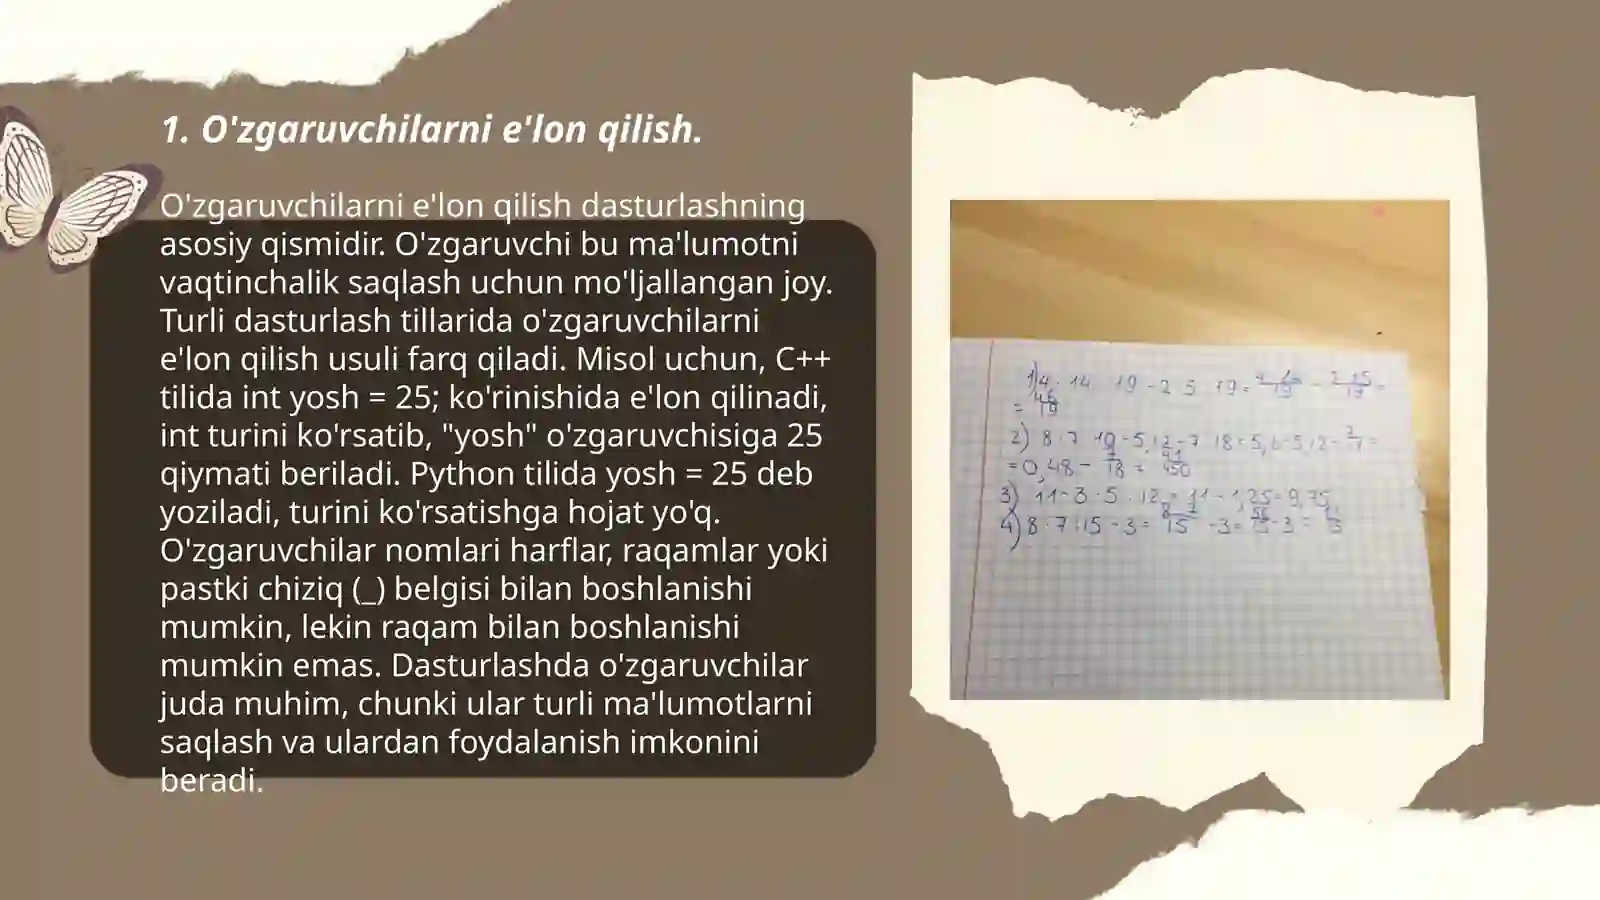 1. O'zgaruvchilarni e'lon qilish.
O'zgaruvchilarni e'lon qilish dasturlashning
asosiy qismidir. O'zgaruvchi bu ma'lumotni
vaqtinchalik saqlash uchun mo'ljallangan joy.
Turli dasturlash tillarida o'zgaruvchilarni
e'lon qilish usuli farq qiladi. Misol uchun, C++
tilida int yosh = 25; ko'rinishida e'lon qilinadi,
int turini ko'rsatib, "yosh" o'zgaruvchisiga 25
qiymati beriladi. Python tilida yosh = 25 deb
yoziladi, turini ko'rsatishga hojat yo'q.
O'zgaruvchilar nomlari harflar, raqamlar yoki
pastki chiziq (_) belgisi bilan boshlanishi
mumkin, lekin raqam bilan boshlanishi
mumkin emas. Dasturlashda o'zgaruvchilar
juda muhim, chunki ular turli ma'lumotlarni
saqlash va ulardan foydalanish imkonini
beradi.